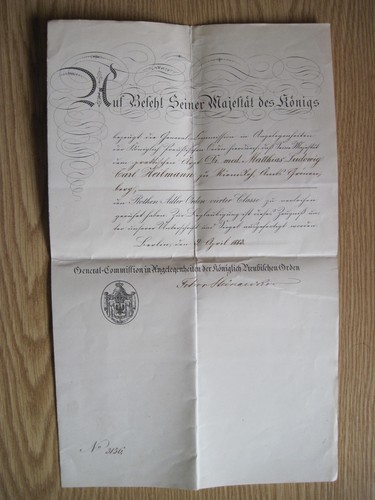 Auf Befehl Seiner Majestät des Königs
bezeugt die General-Commission in Angelegenheiten
der Königlich Preußischen Orden hierdurch daß Seine Majestät
dem practischen Arzt Dr. med. Matthias Ludwig
Carl Heitmann zu
berg,
den Rothen Adler Orden vierter Classe zu verleihen
geruht haben. Zur Beglaubigung ist dieses Zeugniß un-
ter unserer Unterschrift und Siegel ausgefertigt worden.
Berlin, den April 1883.
General-Commission in Angelegenheiten der Königlich Preußischen Orden
No